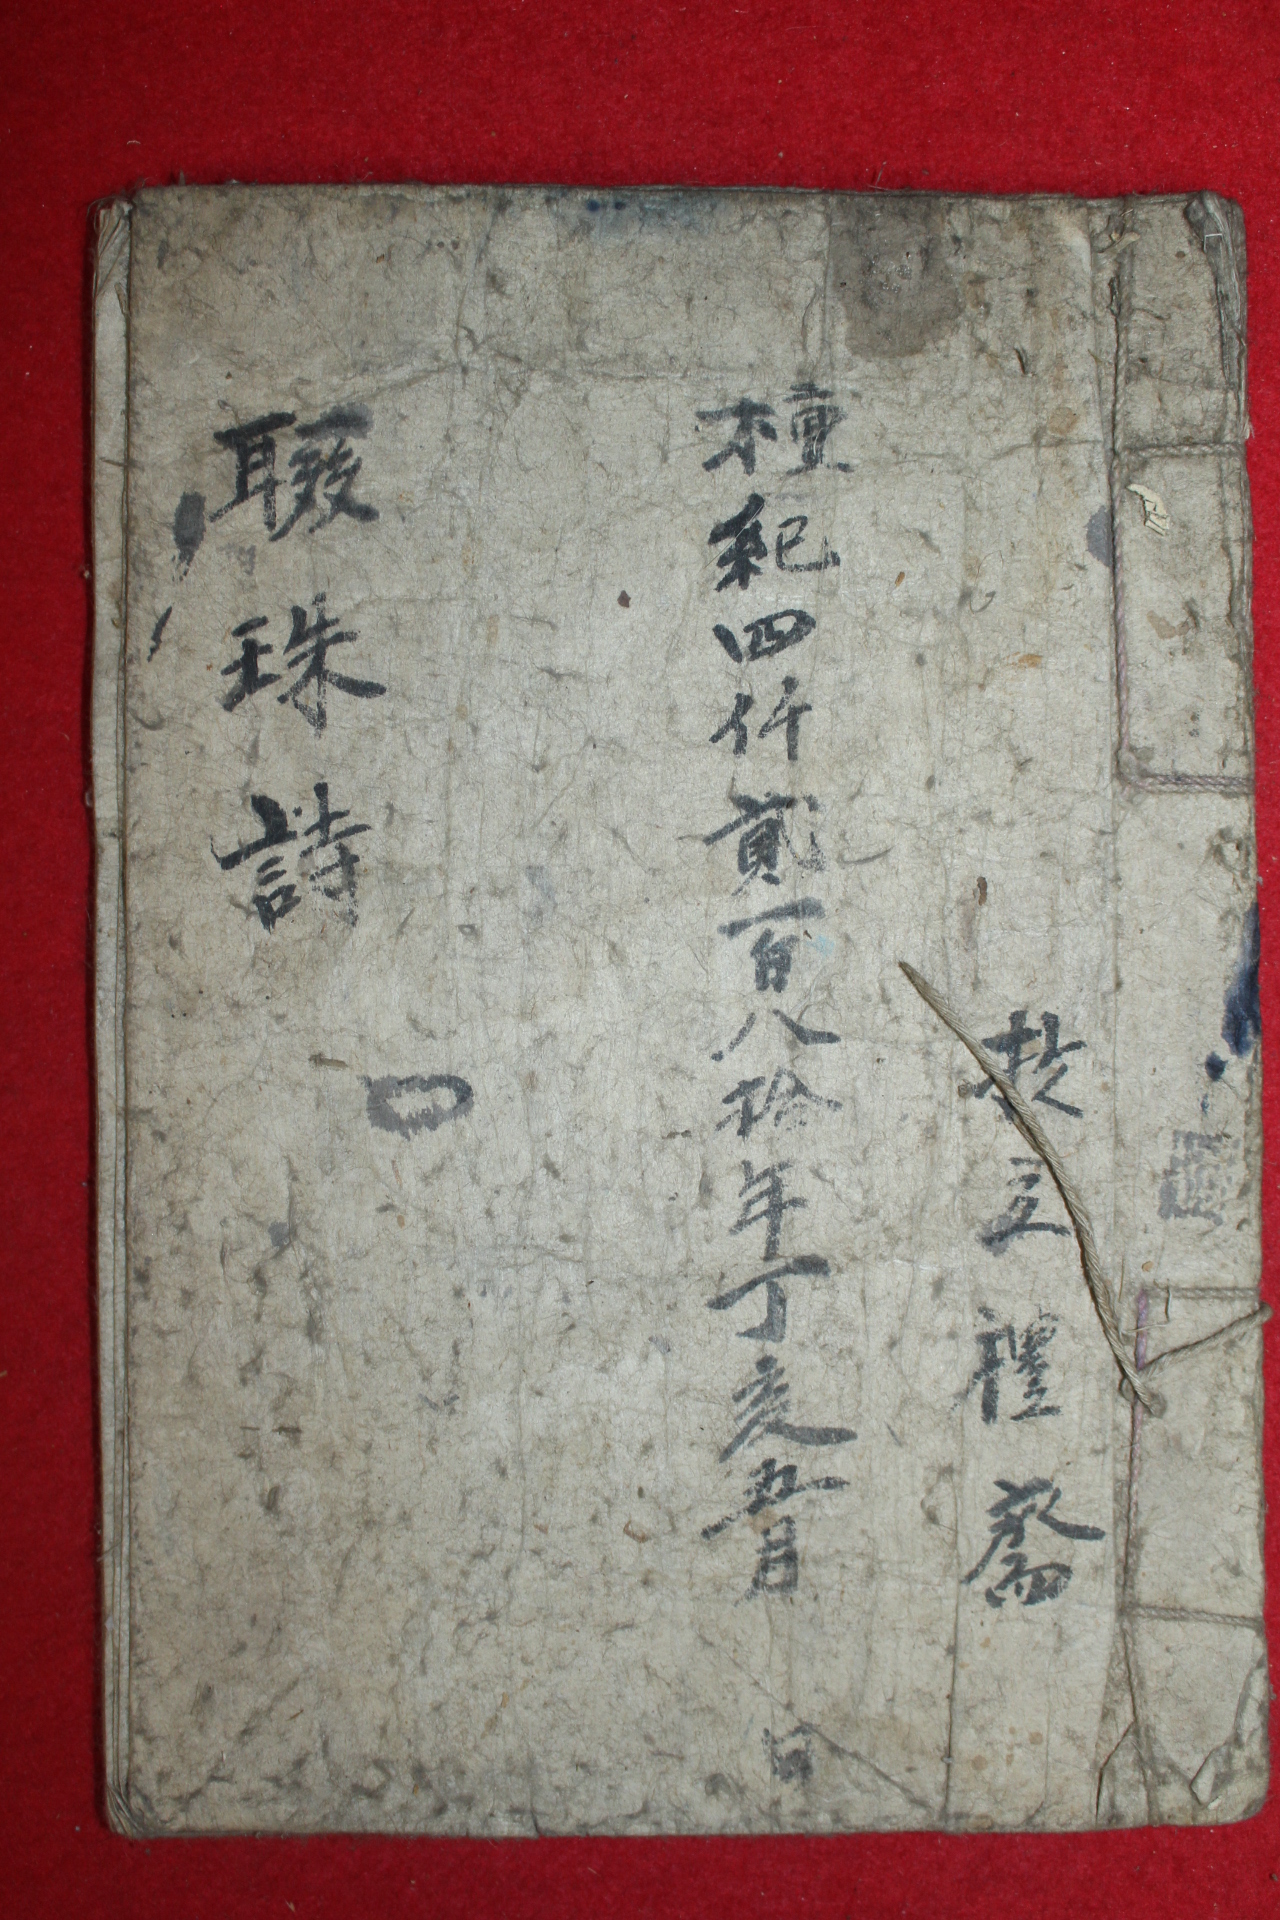 扵立禮齋
檀紀四仟貳百八拾年丁亥五月 日
聯珠詩